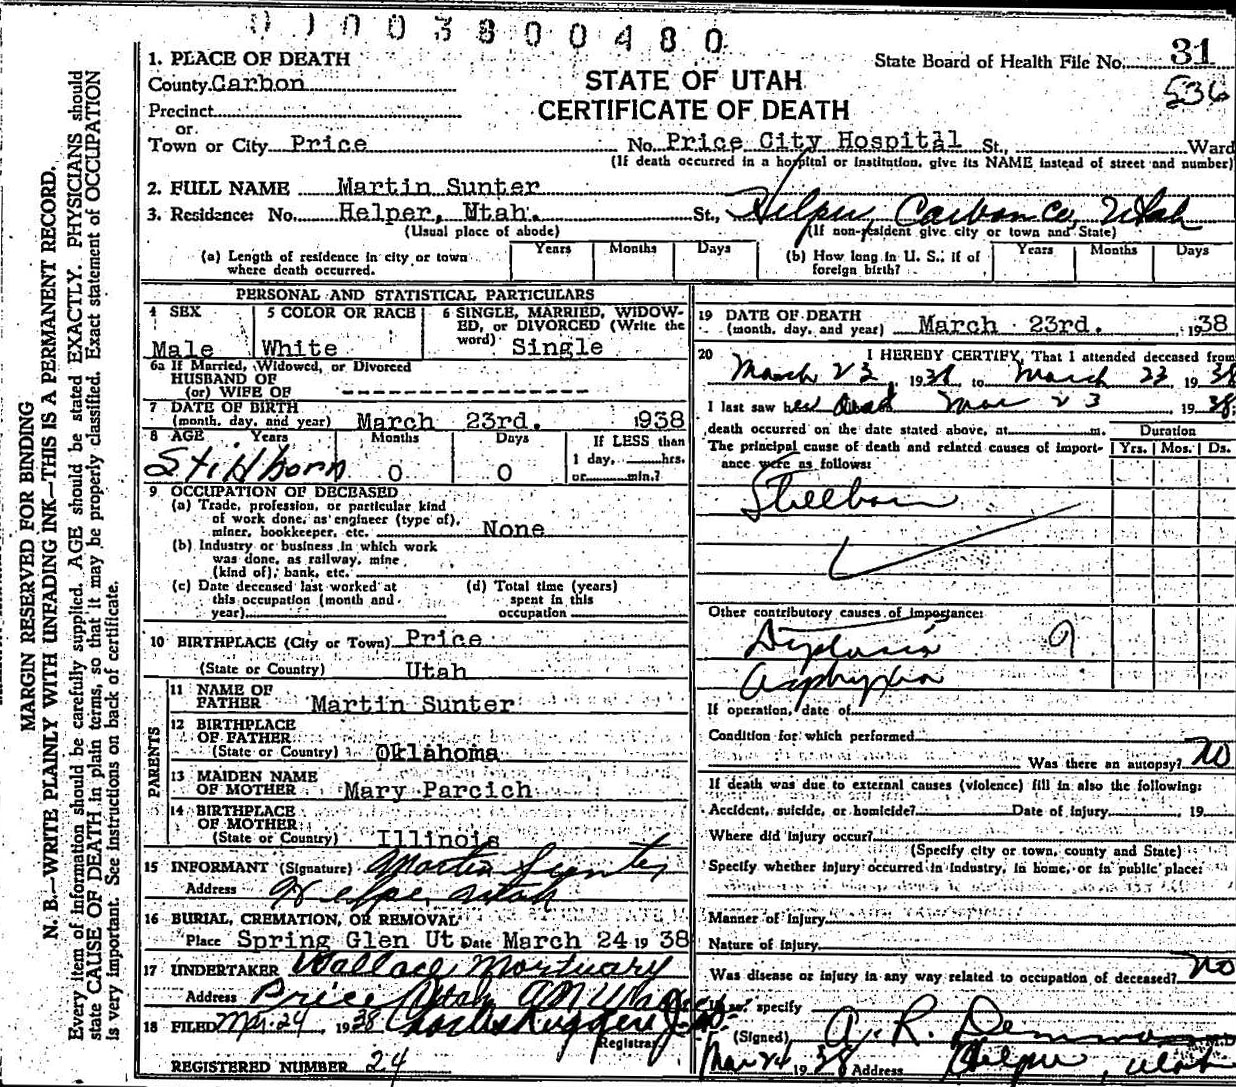 0 1 0 0 3 8 0 0 4 8 0
1. PLACE OF DEATH
State Board of Health File No. 31
County Carbon
STATE OF UTAH
536
Precinct
CERTIFICATE OF DEATH
or
Town or City Price No. Price City Hospital St., Ward
(If death occurred in a hospital or institution, give its NAME instead of street and number)
2. FULL NAME Martin Sunter
3. Residence: No. Helper, Utah. St., Helper, Carbon Co, Utah
(Usual place of abode) (If non-resident give city or town and State)
(a) Length of residence in city or town where death occurred. Years Months Days
(b) How long in U. S.; if of foreign birth? Years Months Days
PERSONAL AND STATISTICAL PARTICULARS
4 SEX
Male
5 COLOR OR RACE
White
6 SINGLE, MARRIED, WIDOW-
ED, or DIVORCED (Write the
word) Single
6a If Married, Widowed, or Divorced
HUSBAND OF
(or) WIFE OF ------------------
7 DATE OF BIRTH
(month, day, and year) March 23rd. 1938
8 AGE Years Months Days If LESS than
1 day, hrs.
or min.?
Stillborn 0 0
9 OCCUPATION OF DECEASED
(a) Trade, profession, or particular kind
of work done, as engineer (type of),
miner, bookkeeper, etc. None
(b) Industry or business in which work
was done, as railway, mine
(kind of), bank, etc.
(c) Date deceased last worked at
this occupation (month and
year)
(d) Total time (years)
spent in this
occupation
10 BIRTHPLACE (City or Town) Price
(State or Country) Utah
PARENTS
11 NAME OF
FATHER Martin Sunter
12 BIRTHPLACE
OF FATHER
(State or Country) Oklahoma
13 MAIDEN NAME
OF MOTHER Mary Parcich
14 BIRTHPLACE
OF MOTHER
(State or Country) Illinois
15 INFORMANT (Signature) Martin Sunter
Address Helper, Utah
16 BURIAL, CREMATION, OR REMOVAL
Place Spring Glen Ut Date March 24 19 38
17 UNDERTAKER Wallace Mortuary
Address Price Utah
18 FILED Mar. 24, 1938 Charles Ruggeri
Registrar
REGISTERED NUMBER 24
19 DATE OF DEATH
(month, day, and year) March 23rd. 1938
20 I HEREBY CERTIFY, That I attended deceased from
March 23, 1938 to March 23 1938
I last saw h dead Mar 23 1938;
death occurred on the date stated above, at m. Duration
The principal cause of death and related causes of import-
ance were as follows: Yrs. Mos. Ds.
Stillborn
Other contributory causes of importance:
Asphyxia
If operation, date of
Condition for which performed
Was there an autopsy? No
If death was due to external causes (violence) fill in also the following:
Accident, suicide, or homicide? Date of injury, 19
Where did injury occur?
(Specify city or town, county and State)
Specify whether injury occurred in industry, in home, or in public place:
Manner of Injury
Nature of Injury
Was disease or injury in any way related to occupation of deceased? No
If so, specify
(Signed) A. R. Demman M.D.
Mar 24 1938 Address Helper, Utah
MARGIN RESERVED FOR BINDING
N. B.—WRITE PLAINLY WITH UNFADING INK—THIS IS A PERMANENT RECORD.
Every item of information should be carefully supplied. AGE should be stated EXACTLY. PHYSICIANS should
state CAUSE OF DEATH in plain terms, so that it may be properly classified. Exact statement of OCCUPATION
is very important. See instructions on back of certificate.